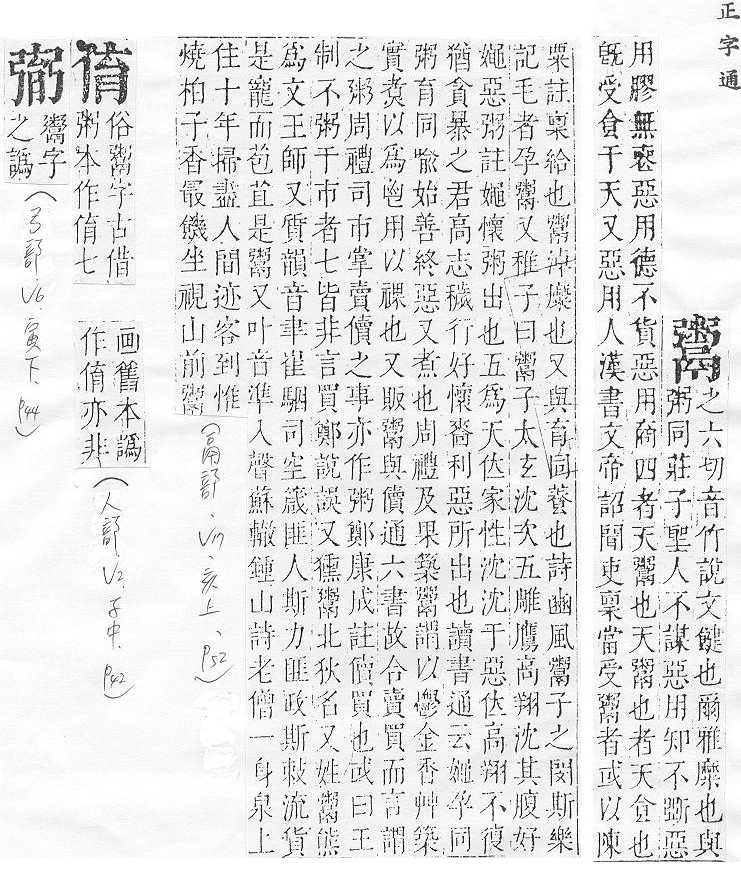 正字通
鬻
之六切音竹說文鍵也爾雅糜也與
粥同莊子聖人不謀惡用知不斲惡
用膠無喪惡用德不貨惡用商四者天鬻也天鬻也者天食也
旣受食于天又惡用人漢書文帝詔聞吏稟當受鬻者或以陳
粟註稟給也鬻淖糜也又與育同養也詩豳風鬻子之閔斯樂
記毛者孕鬻又稚子曰鬻子太玄沈次五雕鷹高翔沈其腹好
𡞦惡粥註𡞦懷粥出也五爲天位家性沈沈于惡位高翔不復
猶貪暴之君高志穢行好懷啇利惡所出也讀書通云𡞦孕同
粥育同喩始善終惡又煮也周禮及果築鬻謂以鬱金香艸築
實煑以爲鬯用以祼也又販鬻與儥通六書故合賣買而言謂
之粥周禮司市掌賣儥之事亦作粥鄭康成註儥買也或曰王
制不粥于市者七皆非言買鄭說誤又獯鬻北狄名又姓鬻熊
爲文王師又質韻音聿崔駰司空箴匪人斯力匪政斯敕流貨
是寵而苞苴是鬻又叶音準入聲蘇轍鍾山詩老僧一身泉上
住十年掃盡人間迹客到惟
燒柏子香晨饑坐視山前鬻
(鬲部、V11、亥上、P52)
俼
俗鬻字古借
粥本作俼七
画舊本譌
作俼亦非
(人部、V2、子中、P42)
𢐹
鬻字
之譌
(弓部、V6、寅下、P44)